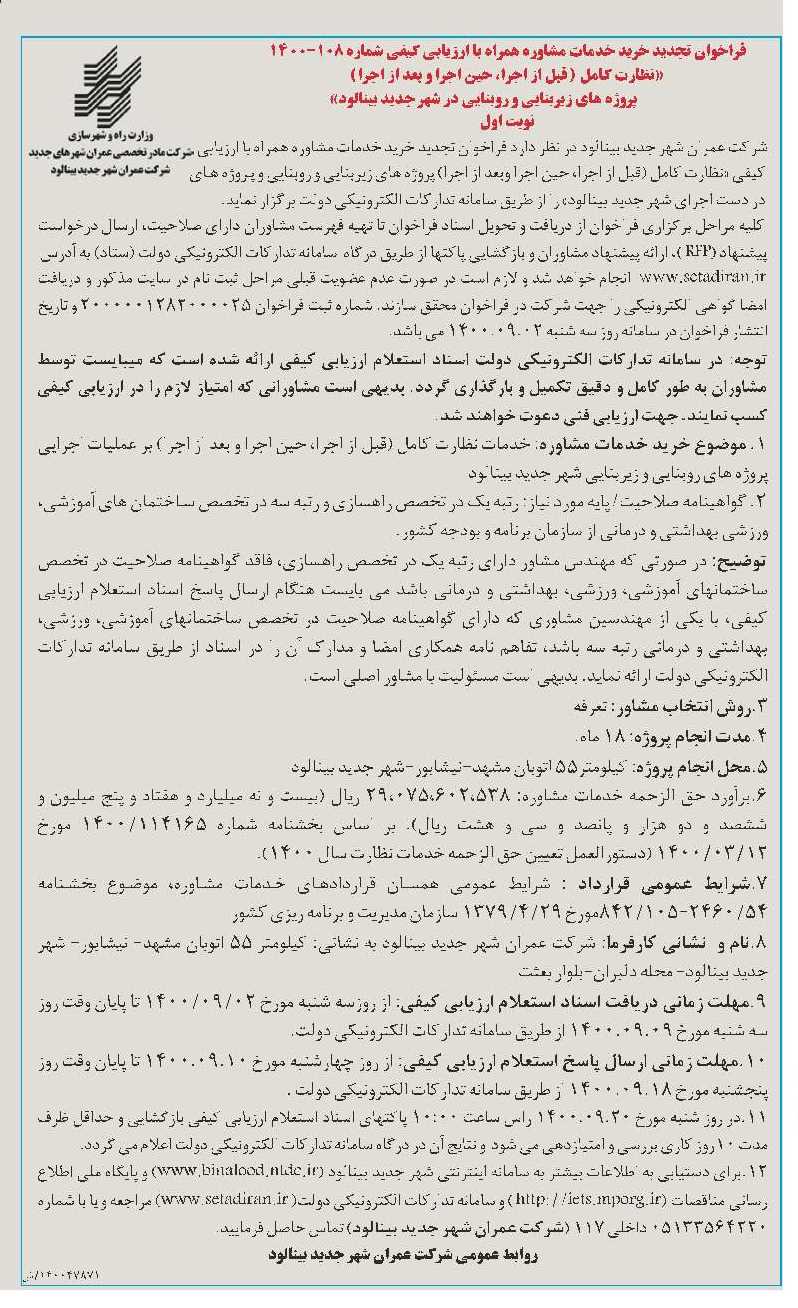 فراخوان تجدید خرید خدمات مشاوره همراه با ارزیابی کیفی شماره ۱۰۸-۱۴۰۰
«نظارت کامل (قبل از اجرا، حین اجرا و بعد از اجرا)
پروژه های زیربنایی و روبنایی در شهر جدید بینالود»
نوبت اول
وزارت راه و شهرسازی
شرکت مادر تخصصی عمران شهرهای جدید
شرکت عمران شهر جدید بینالود
شرکت عمران شهر جدید بینالود در نظر دارد فراخوان تجدید خرید خدمات مشاوره همراه با ارزیابی
کیفی «نظارت کامل (قبل از اجرا، حین اجرا وبعد از اجرا) پروژه های زیربنایی و روبنایی و پروژه های
در دست اجرای شهر جدید بینالود» را از طریق سامانه تدارکات الکترونیکی دولت برگزار نماید.
کلیه مراحل برگزاری فراخوان از دریافت و تحویل اسناد فراخوان تا تهیه فهرست مشاوران دارای صلاحیت، ارسال درخواست
پیشنهاد (RFP)، ارائه پیشنهاد مشاوران و بازگشایی پاکتها از طریق درگاه سامانه تدارکات الکترونیکی دولت (ستاد) به آدرس
www.setadiran.ir انجام خواهد شد و لازم است در صورت عدم عضویت قبلی مراحل ثبت نام در سایت مذکور و دریافت
امضا گواهی الکترونیکی را جهت شرکت در فراخوان محقق سازند. شماره ثبت فراخوان ۲۰۰۰۰۰۱۲۸۲۰۰۰۰۲۵ و تاریخ
انتشار فراخوان در سامانه روز سه شنبه ۱۴۰۰.۰۹.۰۲ می باشد.
توجه: در سامانه تدارکات الکترونیکی دولت اسناد استعلام ارزیابی کیفی ارائه شده است که میبایست توسط
مشاوران به طور کامل و دقیق تکمیل و بارگذاری گردد. بدیهی است مشاورانی که امتیاز لازم را در ارزیابی کیفی
کسب نمایند. جهت ارزیابی فنی دعوت خواهند شد.
۱. موضوع خرید خدمات مشاوره: خدمات نظارت کامل (قبل از اجرا، حین اجرا و بعد از اجرا) بر عملیات اجرایی
پروژه های روبنایی و زیربنایی شهر جدید بینالود
۲. گواهینامه صلاحیت/پایه مورد نیاز: رتبه یک در تخصص راهسازی و رتبه سه در تخصص ساختمان های آموزشی،
ورزشی بهداشتی و درمانی از سازمان برنامه و بودجه کشور.
توضیح: در صورتی که مهندس مشاور دارای رتبه یک در تخصص راهسازی، فاقد گواهینامه صلاحیت در تخصص
ساختمانهای آموزشی، ورزشی، بهداشتی و درمانی باشد می بایست هنگام ارسال پاسخ اسناد استعلام ارزیابی
کیفی، با یکی از مهندسین مشاوری که دارای گواهینامه صلاحیت در تخصص ساختمانهای آموزشی، ورزشی،
بهداشتی و درمانی رتبه سه باشد، تفاهم نامه همکاری امضا و مدارک آن را در اسناد از طریق سامانه تدارکات
الکترونیکی دولت ارائه نماید. بدیهی است مسئولیت با مشاور اصلی است.
۳.روش انتخاب مشاور: تعرفه
۴.مدت انجام پروژه: ۱۸ ماه.
۵.محل انجام پروژه: کیلومتر ۵۵ اتوبان مشهد-نیشابور-شهر جدید بینالود
۶.برآورد حق الزحمه خدمات مشاوره: ۲۹،۰۷۵،۶۰۲،۵۳۸ ریال (بیست و نه میلیارد و هفتاد و پنج میلیون و
ششصد و دو هزار و پانصد و سی و هشت ریال). بر اساس بخشنامه شماره ۱۴۰۰/۱۱۴۱۶۵ مورخ
۱۴۰۰/۰۳/۱۲ (دستورالعمل تعیین حق الزحمه خدمات نظارت سال ۱۴۰۰).
۷.شرایط عمومی قرارداد : شرایط عمومی همسان قراردادهای خدمات مشاوره، موضوع بخشنامه
۸۴۲/۱۰۵-۲۴۶۰/۵۴مورخ ۱۳۷۹/۴/۲۹ سازمان مدیریت و برنامه ریزی کشور
۸.نام و نشانی کارفرما: شرکت عمران شهر جدید بینالود به نشانی: کیلومتر ۵۵ اتوبان مشهد- نیشابور- شهر
جدید بینالود- محله دلبران-بلوار بعثت
۹.مهلت زمانی دریافت اسناد استعلام ارزیابی کیفی: از روزسه شنبه مورخ ۱۴۰۰/۰۹/۰۲ تا پایان وقت روز
سه شنبه مورخ ۱۴۰۰.۰۹.۰۹ از طریق سامانه تدارکات الکترونیکی دولت.
۱۰.مهلت زمانی ارسال پاسخ استعلام ارزیابی کیفی: از روز چهارشنبه مورخ ۱۴۰۰.۰۹.۱۰ تا پایان وقت روز
پنجشنبه مورخ ۱۴۰۰.۰۹.۱۸ از طریق سامانه تدارکات الکترونیکی دولت .
۱۱.در روز شنبه مورخ ۱۴۰۰.۰۹.۲۰ راس ساعت ۱۰:۰۰ پاکتهای اسناد استعلام ارزیابی کیفی بازگشایی و حداقل ظرف
مدت ۱۰روز کاری بررسی و امتیازدهی می شود و نتایج آن در درگاه سامانه تدارکات الکترونیکی دولت اعلام می گردد.
۱۲.برای دستیابی به اطلاعات بیشتر به سامانه اینترنتی شهر جدید بینالود (www.binalood.ntdc.ir) و پایگاه ملی اطلاع
رسانی مناقصات (http://iets.mporg.ir) و سامانه تدارکات الکترونیکی دولت( www.setadiran.ir) مراجعه و یا با شماره
۰۵۱۳۳۵۶۴۲۲۰ داخلی ۱۱۷ (شرکت عمران شهر جدید بینالود) تماس حاصل فرمایید.
روابط عمومی شرکت عمران شهر جدید بینالود
۱۴۰۰۴۷۸۷۱/ش